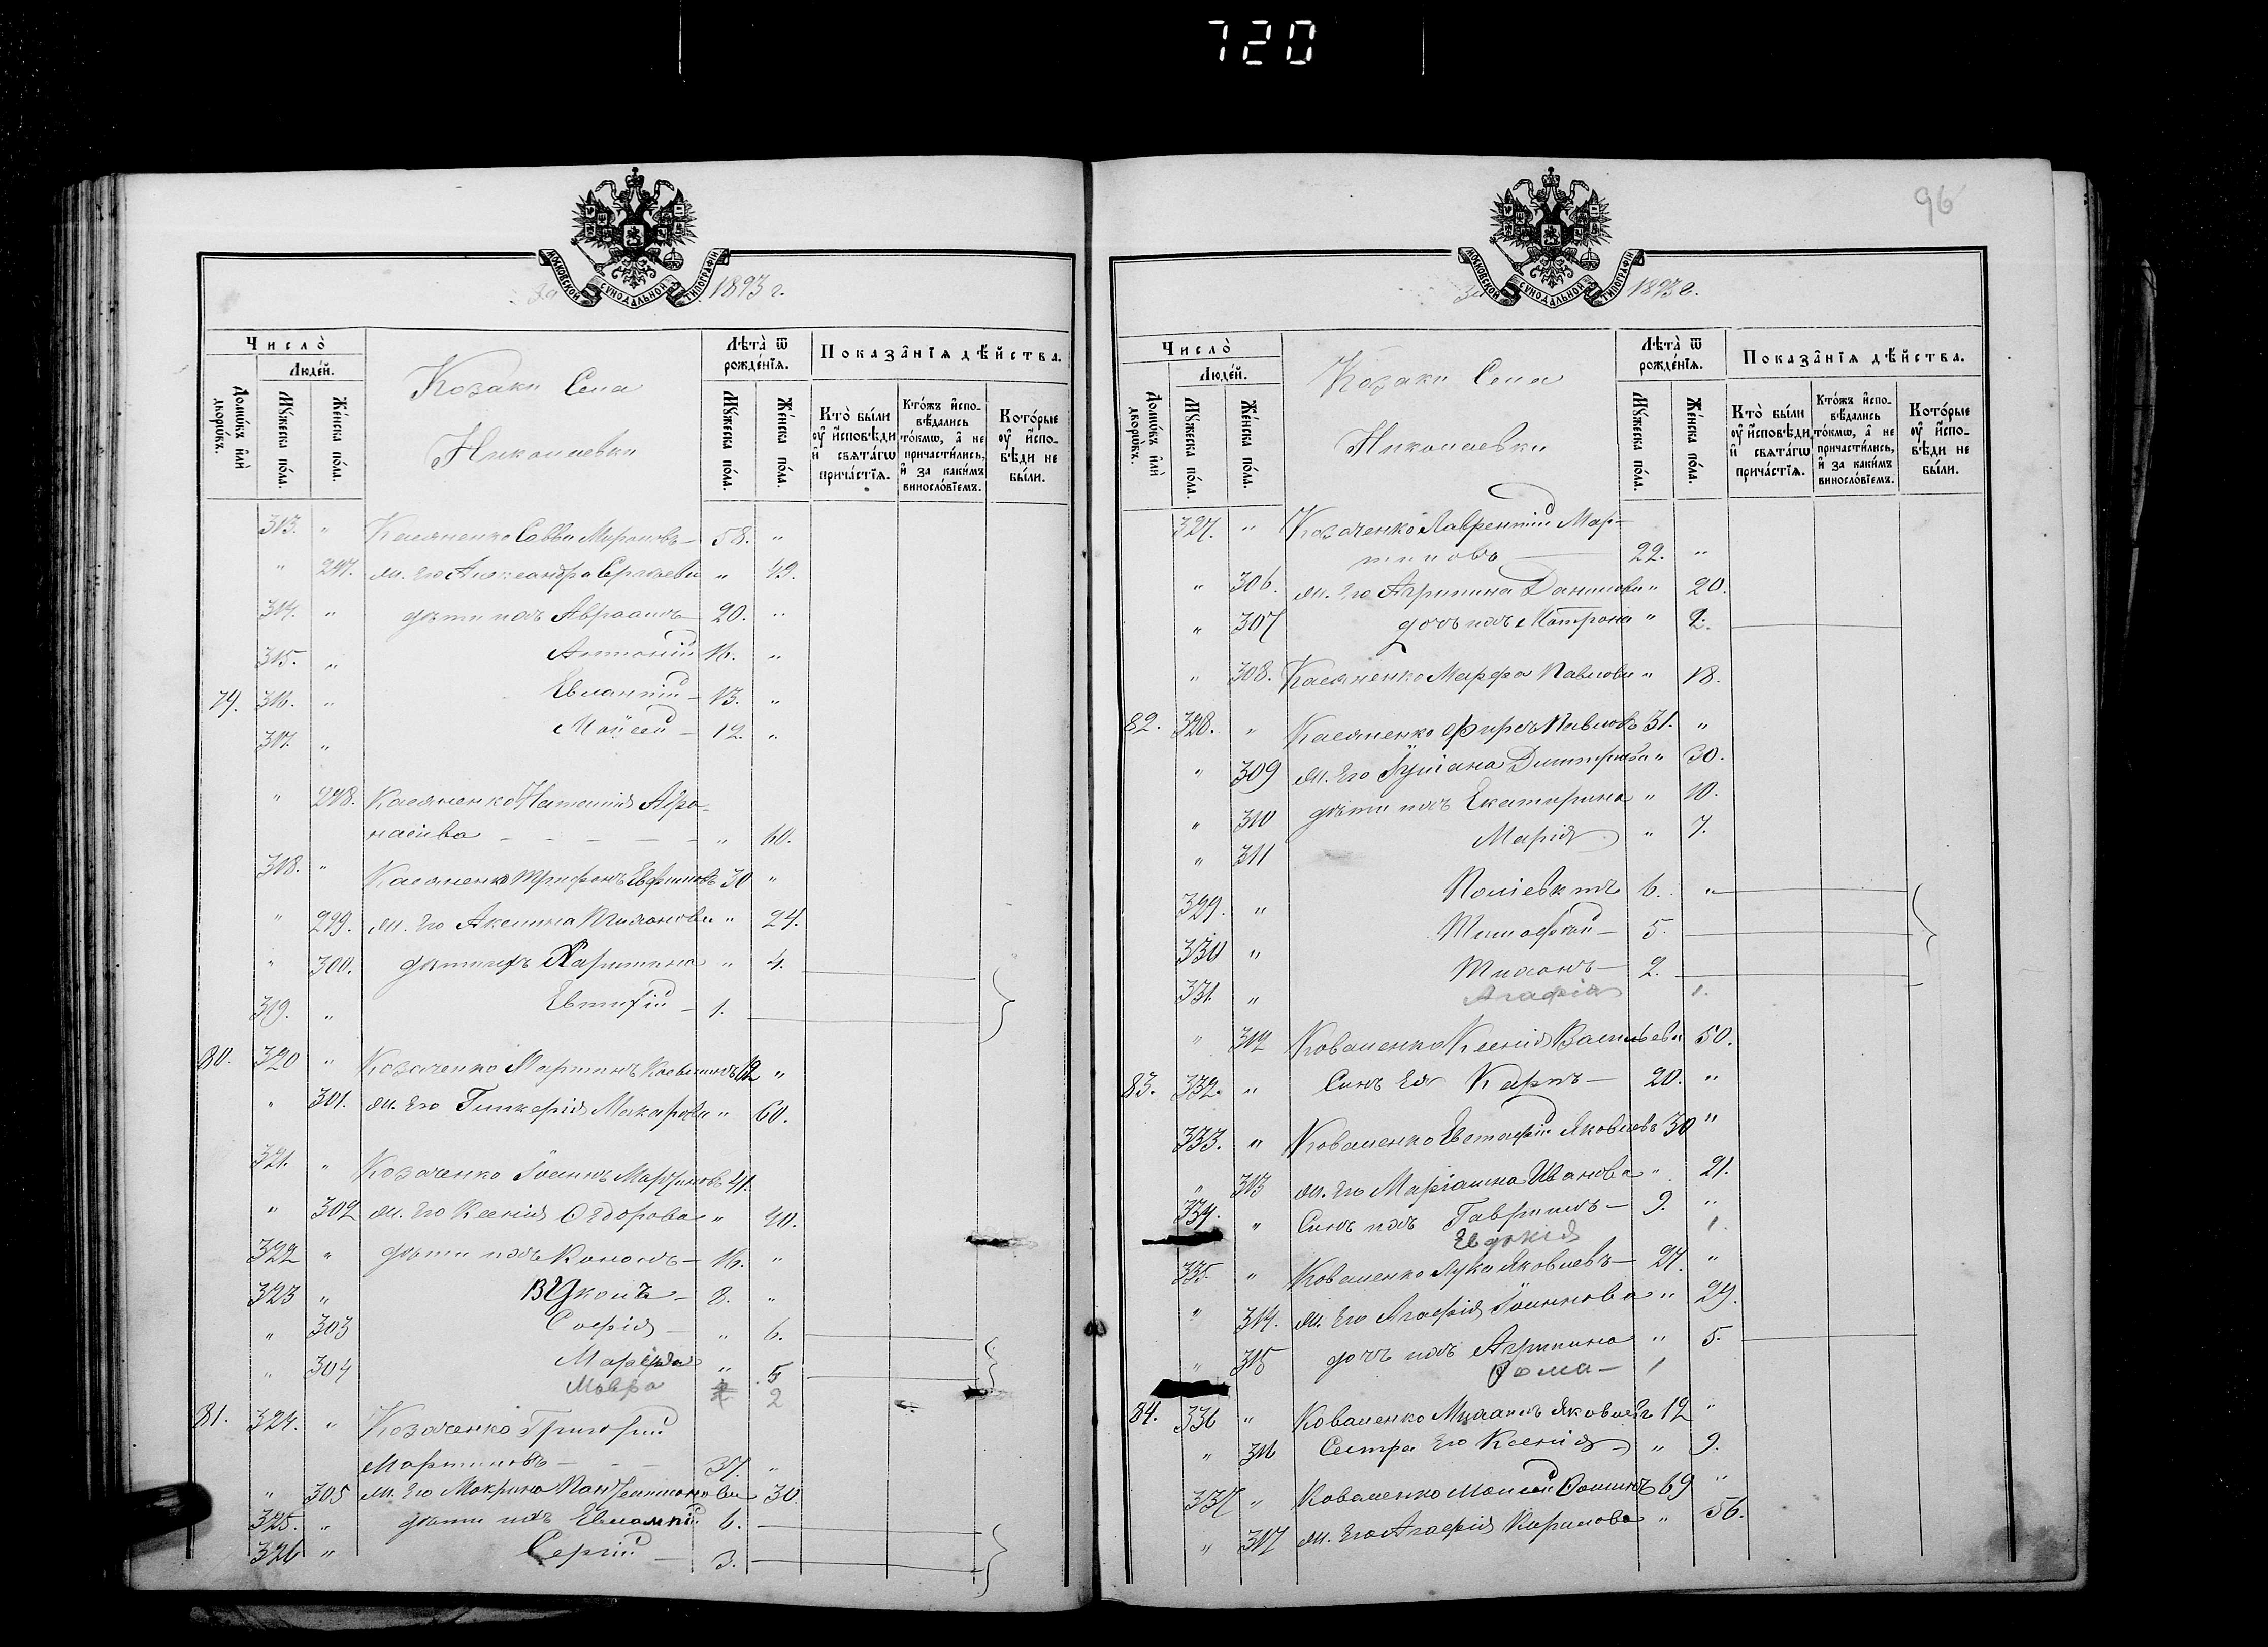 720
За 1893 г.
МОСКОВСКОЙ СѴНОДАЛЬНОЙ ТИПОГРАФІИ
Число̀
Люде́й.
Домѡ́въ и҆лѝ дворѡ́въ.
Мꙋ́жеска по́ла.
Же́нска по́ла.
Козаки Села
Николаевки
Лѣта̀ ѿ рожде́нїѧ.
Мꙋ́жеска по́ла.
Же́нска по́ла.
Показа̂нїѧ дѣ́йства.
Кто̀ бы́ли ᲂу҆ и҆сповѣди и҆ свѧта́гѡ прича́стїѧ.
Кто́жъ и҆спо-вѣ́дались то́кмѡ, а҆ не причасти́лись, и҆ за каки́мъ виносло́вїемъ.
Кото́рые ᲂу҆ и҆спо-вѣди не бы́ли.
313. " Касяненко Савва Мироновъ — 58. "
" 297. ж. Его Александра Сергѣева " 49.
314. " дѣти ихъ Авраамъ — 20. "
315. " Антоній 16. "
79. 316. " Евлампій — 13. "
317. " Мойсей — 12. "
" 298. Касяненко Наталія Афа-
насіева — — — — — " 60.
318. " Касяненко Трифонъ Евфимовъ 30 "
" 299. ж. Его Акелина Тихонова " 24.
" 300. дѣти ихъ Харитина " 4.
319. " Евтихій — 1.
80. 320 " Козаченко Мартинъ 62 "
" 301. ж. Его Гликерія Макарова " 60.
321. " Козаченко Іоаннъ Мартиновъ 41.
" 302 ж. Его Ксенія Ѳедорова " 40.
322 " дѣти ихъ Кононъ — 16. "
323 " Вуколъ — 8. "
" 303 Софія — " 6.
" 304 Марія " 5
Мавра 2
81. 324. " Козаченко Григорій
Мартиновъ — — — 37. "
" 305 ж. Его Макрина Пантелимонова 30.
325. " дѣти ихъ Евлампій 6. —
326 " Сергій — 3. —
96
За 1893 г.
МОСКОВСКОЙ СѴНОДАЛЬНОЙ ТИПОГРАФІИ
Число̀
Люде́й.
Домѡ́въ и҆лѝ дворѡ́въ.
Мꙋ́жеска по́ла.
Же́нска по́ла.
Козаки Села
Николаевки
Лѣта̀ ѿ рожде́нїѧ.
Мꙋ́жеска по́ла.
Же́нска по́ла.
Показа̂нїѧ дѣ́йства.
Кто̀ бы́ли ᲂу҆ и҆сповѣди и҆ свѧта́гѡ прича́стїѧ.
Кто́жъ и҆спо-вѣ́дались то́кмѡ, а҆ не причасти́лись, и҆ за каки́мъ виносло́вїемъ.
Кото́рые ᲂу҆ и҆спо-вѣди не бы́ли.
327. " Козаченко Лаврентій Мар-
тиновъ — 22. "
" 306. ж. Его Агрипина Данилова " 20.
" 307 дочь ихъ Матрона " 2.
" 308. Касяненко Марфа Павлова " 18.
82. 328. " Касяненко Фирсъ Павловъ 31. "
" 309 ж. Его Іуліана Димитріева " 30.
" 310 дѣти ихъ Екатерина " 10.
" 311 Марія " 7.
329. " Поліевктъ 6. "
330 " Тимофей — 5.
331. " Тихонъ — 2.
Агафія 1.
" 312 Коваленко Ксенія Васильева 50.
83. 332. " Сынъ Ея Карпъ — 20. "
333. " Коваленко Евстафій Яковлевъ 30 "
" 313 ж. Его Маріамна Иванова " 21.
334. " Сынъ ихъ Гавриилъ — 9. "
Евдокія 1.
335. " Коваленко Лука Яковлевъ — 27. "
" 314. ж. Его Агафія Іоаннова " 29.
" 315 дочь ихъ Агрипина " 5.
Ѳома — 1
84. 336 " Коваленко Михаилъ Яковлевъ 12 "
" 316 Сестра Его Ксенія " 9.
337 " Коваленко Мойсей Ѳоминъ 69 "
" 317 ж. Его Агафія Кирилова " 56.